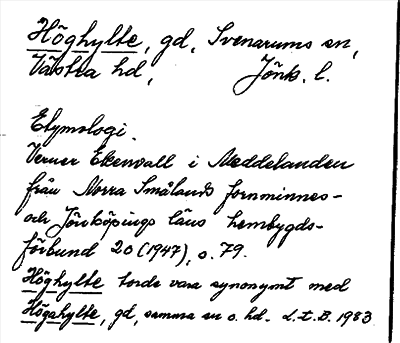 Höghylte, gd, Svenarums sn,
Västra hd, Jönk. l.
Etymologi.
Verner Ekenvall i Meddelanden
från Norra Smålands fornminnes-
och Jönköpings läns hembygds-
förbund 20 (1947), s. 79.
Höghylte torde vara synonymt med
Högahylte, gd, samma sn o. hd. L.t.B. 1983